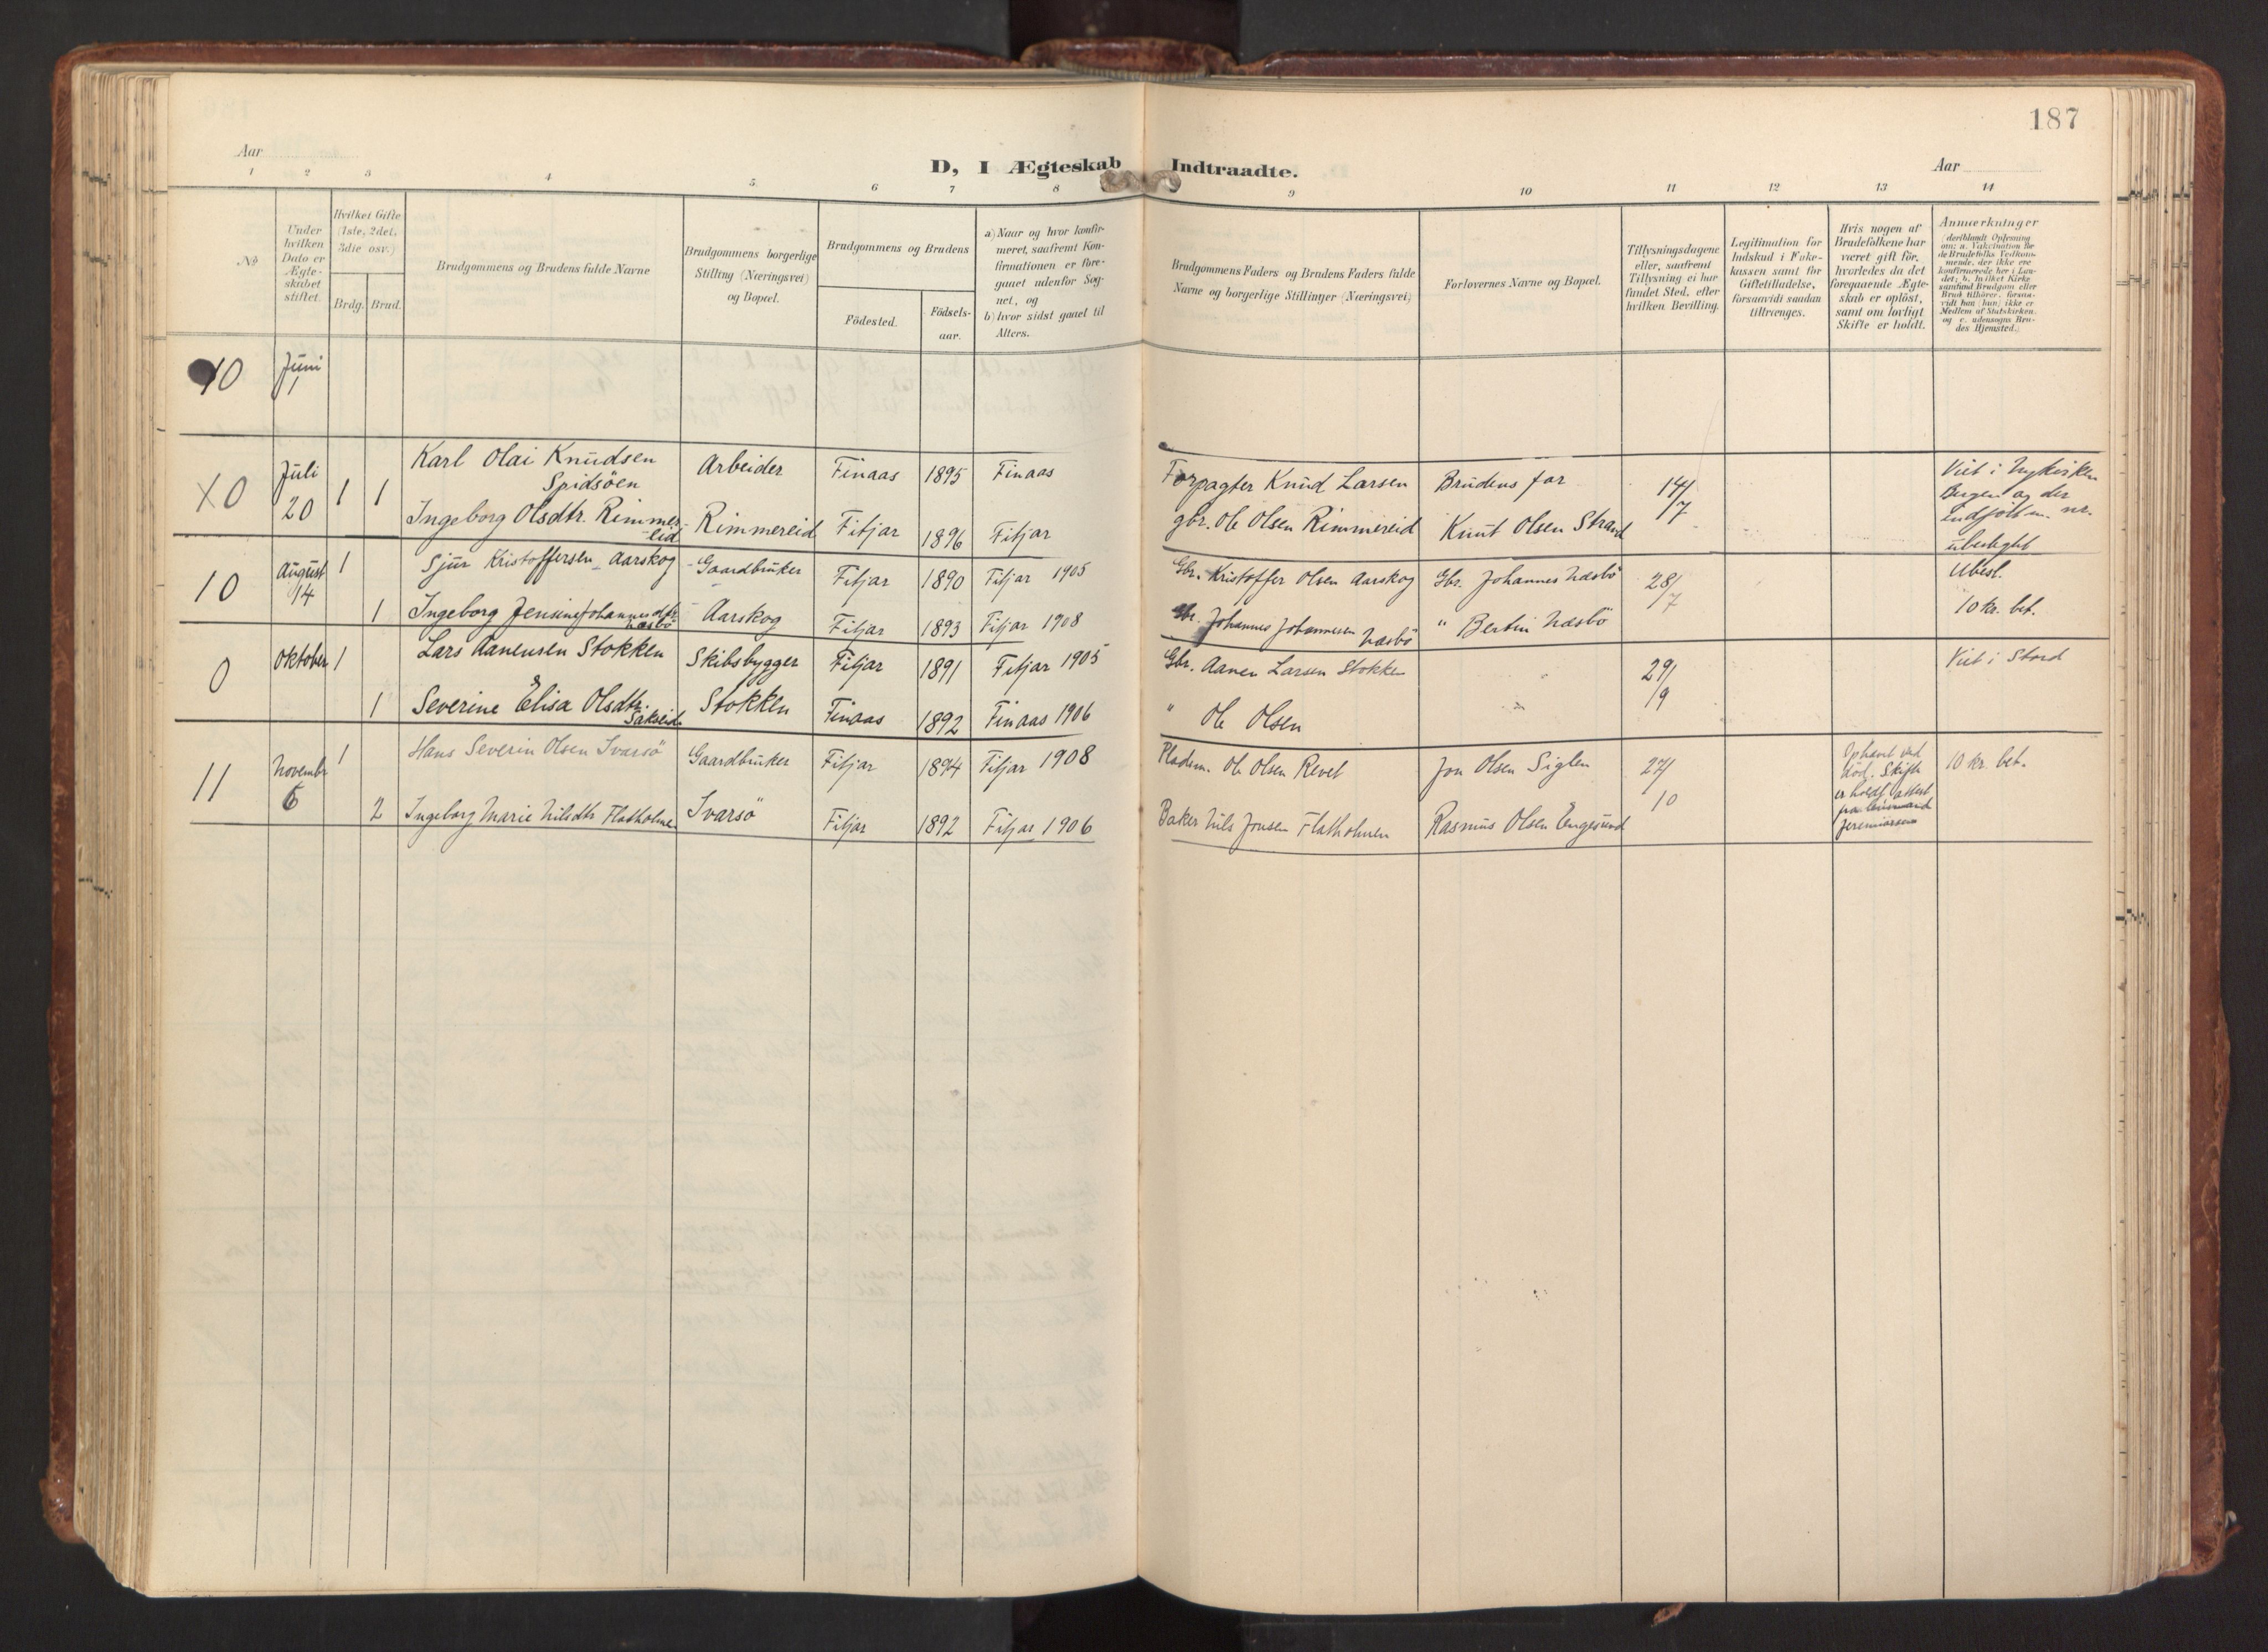 187
Aar
D, I Ægteskab Indtraadte.
Aar
1 2 3 4 5 6 7 8 9 10 11 12 13 14
№
Under hvilken Dato er Ægteskabet stiftet.
Hvilket Gifte (1ste, 2det, 3die osv.)
Brdg. Brud.
Brudgommens og Brudens fulde Navne
Brudgommens borgerlige Stilling (Næringsvei) og Bopæl.
Brudgommens og Brudens
Födested.
Födselsaar.
a) Naar og hvor konfirmeret, saafremt Konfirmationen er foregaaet udenfor Sognet, og
b) hvor sidst gaaet til Alters.
Brudgommens Faders og Brudens Faders fulde Navne og borgerlige Stillinger (Næringsvei)
Forlovernes Navne og Bopæl.
Tillysningsdagene eller, saafremt Tillysning ei har fundet Sted, efter hvilken Bevilling.
Legitimation for Indskud i Enkekassen samt for Giftetilladelse, forsaavidt saadan tiltrænges.
Hvis nogen af Brudefolkene har været gift før, hvorledes da det foregaaende Ægteskab er oplöst, samt om lovligt Skifte er holdt.
Anmærkninger (deriblandt Oplysning om: a. Vakcination for de Brudefolks Vedkommende, der ikke ere konfirmerede her i Landet; b. hvilket Kirkesamfund Brudgom eller Brud tilhörer, forsaavidt han (hun) ikke er Medlem af Statskirken, og c. udensogns Brudes Hjemsted.)
10 Juni
10 Juli 20 1 1 Karl Olai Knudsen Spidsöen Arbeider Finaas 1895 Finaas Forpagter Knud Larsen Brudens far 14/7 Viet i Nykirken
Ingeborg Olsdtr. Rimmereid Rimmereid Fitjar 1896 Fitjar gbr. Ole Olsen Rimmereid Knut Olsen Strand Bergen og der
10 August 14 1 Sjur Kristoffersen Aarskog Gaardbruker Fitjar 1890 Fitjar 1905 Gbr. Kristoffer Olsen Aarskog Gbr. Johannes Næsbö 28/7 Ubesl.
1 Ingeborg Jensine Johannesdtr Næsbö Aarskog Fitjar 1893 Fitjar 1908 Gbr. Johannes Johannesen Næsbö " Bertin Næsbö 10 kr. bet.
0 Oktober 1 Lars Aanensen Stokken Skibsbygger Fitjar 1891 Fitjar 1905 Gbr. Aanen Larsen Stokken " 29/9 Viet i Stord
1 Severine Elisa Olsdtr. Sakseid Stokken Finaas 1892 Finaas 1906 " Ole Olsen "
11 Novembr 6 1 Hans Severin Olsen Ivarsö Gaardbruker Fitjar 1894 Fitjar 1908 Pladsm. Ole Olsen Revel Jon Olsen Siglen 27/10 Ophævt ved död. Skifte er holdt attest fra lensmand Jeremiassen 10 kr. bet.
2 Ingeborg Marie Nilsdtr Flatholmen Ivarsö Fitjar 1892 Fitjar 1906 Baker Nils Jonsen Flatholmen Rasmus Olsen Engesund